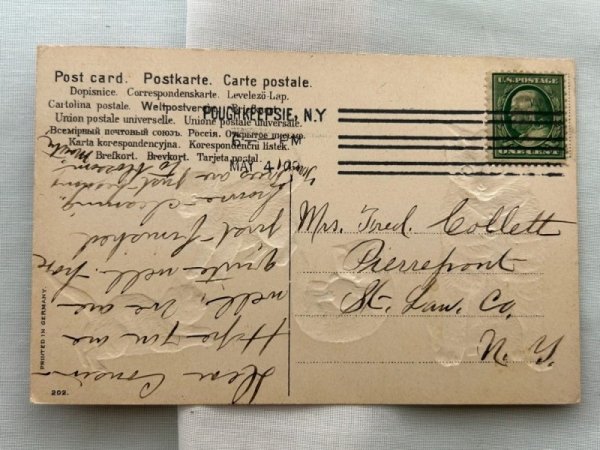 Post card. Postkarte. Carte postale.
Dopisnice. Correspondenskarte. Levelező-Lap.
Cartolina postale. Weltpostverein. Brefkort.
Union postale universelle. Unione postale universale.
Всемірный почтовый союзъ. Россія. Открытое письмо.
Karta korespondencyjna. Korespondenční listek.
Brefkort. Brevkort. Tarjeta postal.
POUGHKEEPSIE, N.Y
MAY 4
U.S. POSTAGE
ONE CENT
Mrs. Fred. Collett
Pierrepont
St. Law. Co.
N. Y.
Dear Cousin
Hope you are
well, we are
quite well here
just finished
house-cleaning.
Trees are just
to blossom.
PRINTED IN GERMANY.
292.